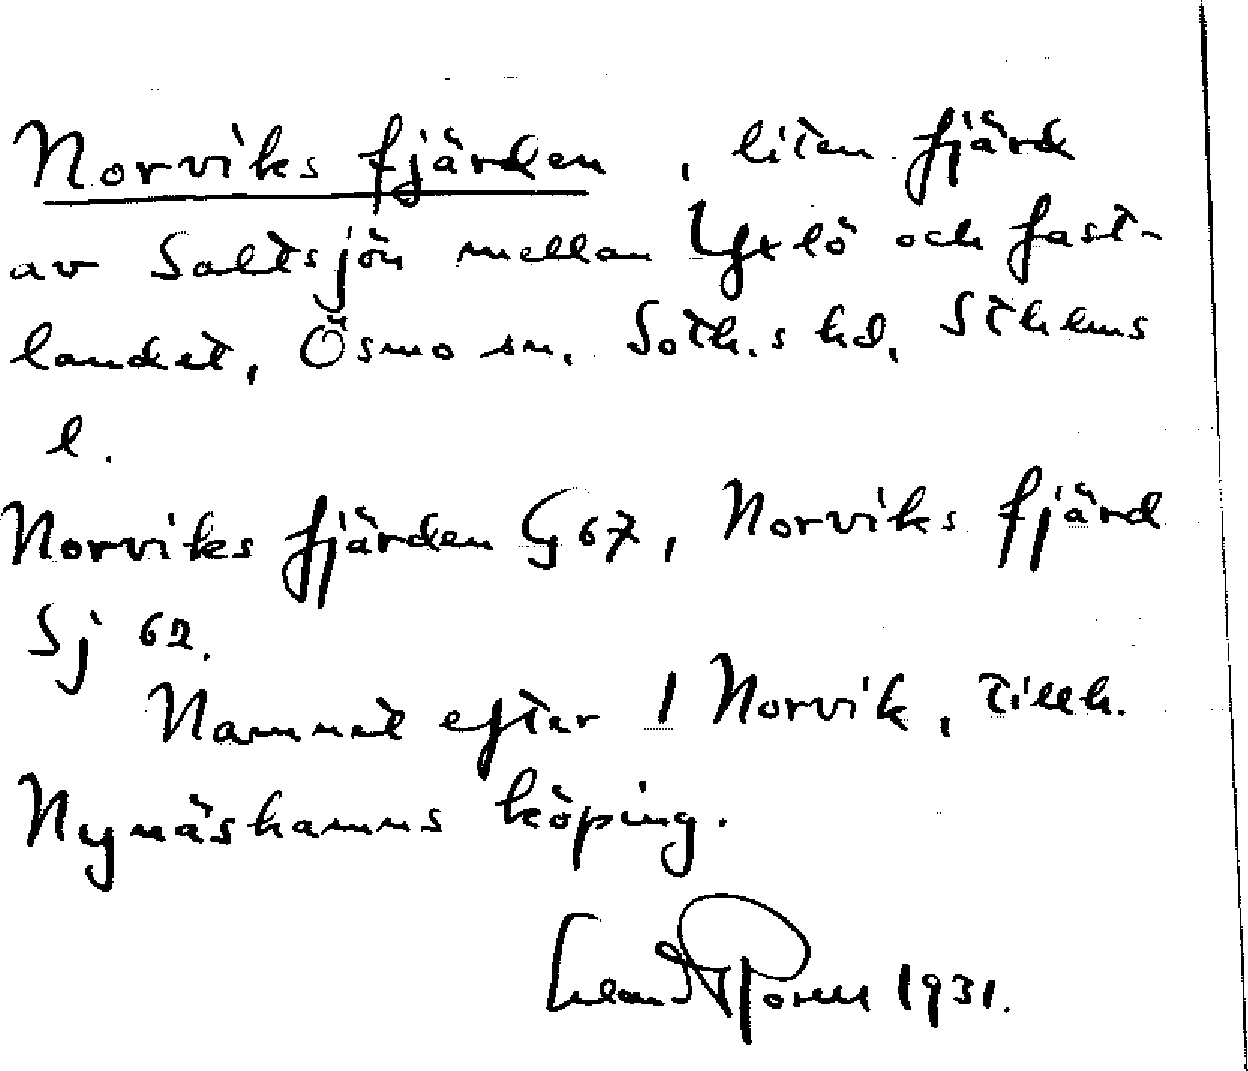 Norviks fjärden, liten fjärd
av Saltsjön mellan Yxlö och fast-
landet, Ösmo sn. Soth.s hd, Sthlms
l.
Norviks fjärden G 67, Norviks fjärd
Sj 62.
Namnet efter 1 Norvik, tillh.
Nynäshamns köping.
1931.